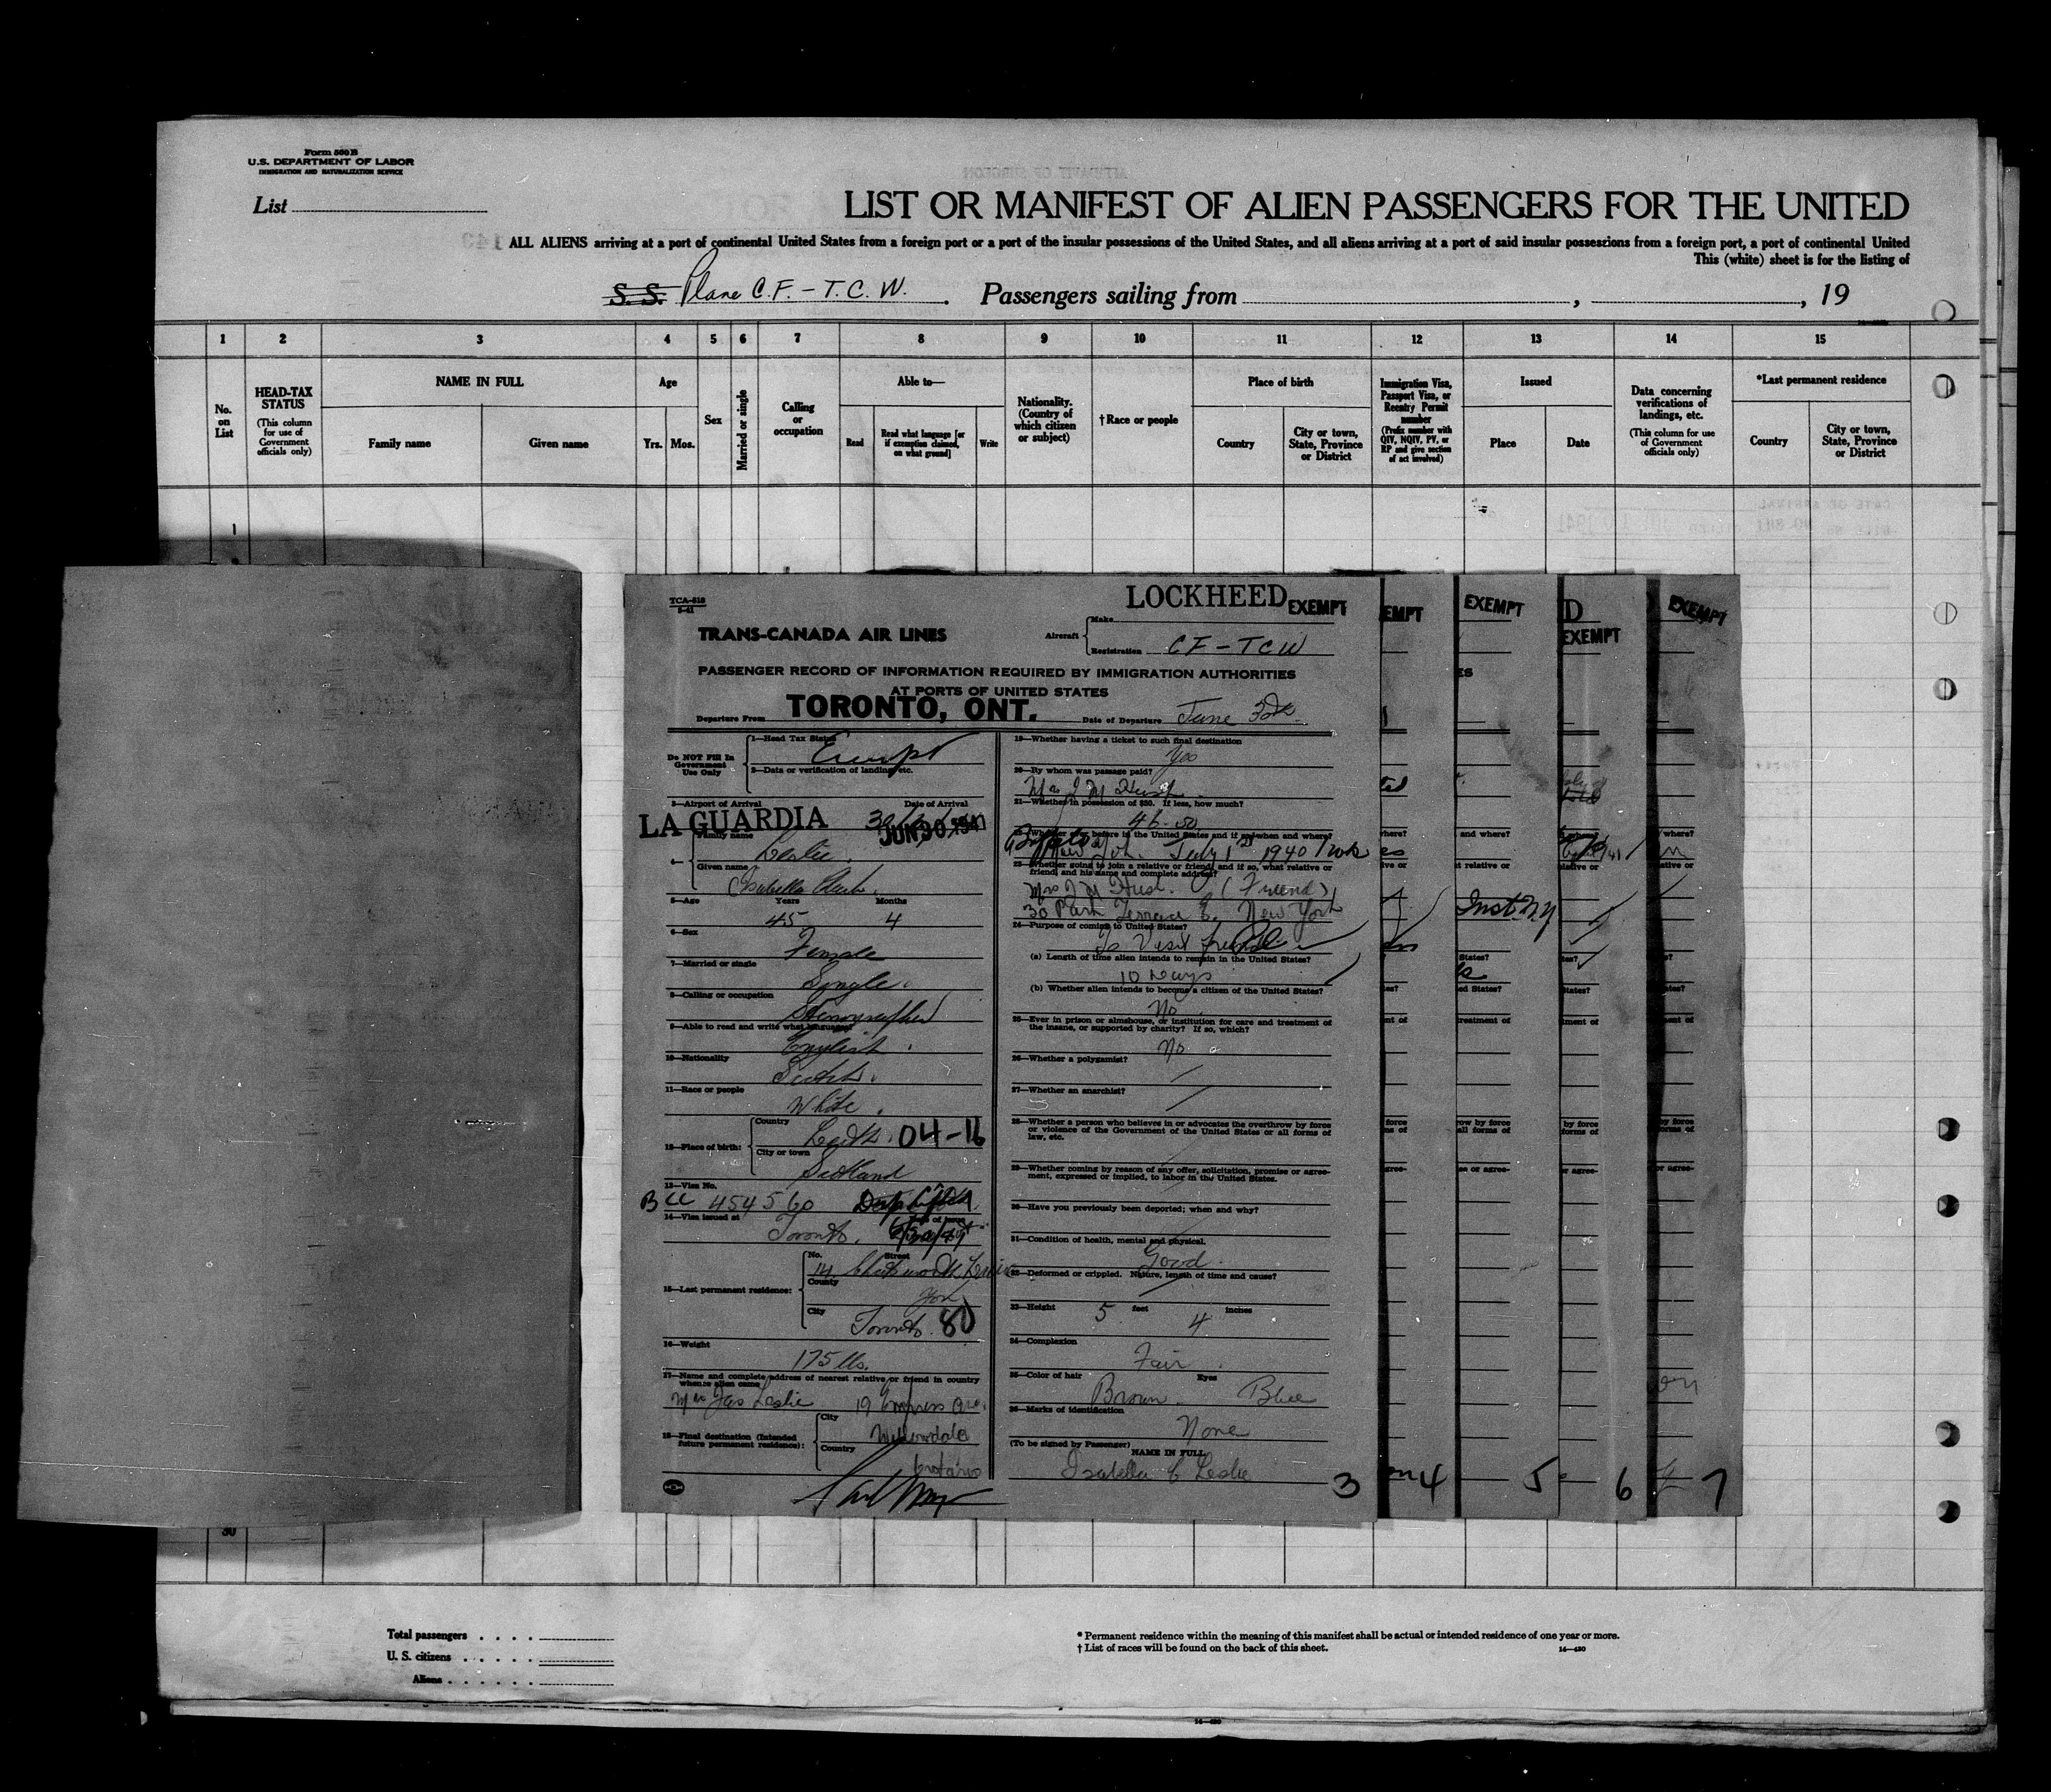 Form 500 B
U.S. DEPARTMENT OF LABOR
IMMIGRATION AND NATURALIZATION SERVICE
List
LIST OR MANIFEST OF ALIEN PASSENGERS FOR THE UNITED
ALL ALIENS arriving at a port of continental United States from a foreign port or a port of the insular possessions of the United States, and all aliens arriving at a port of said insular possessions from a foreign port, a port of continental United
This (white) sheet is for the listing of
S. S. Plane C.F. - T.C.W. Passengers sailing from , , 19
1 2 3 4 5 6 7 8 9 10 11 12 13 14 15
No. on List
HEAD-TAX STATUS
(This column for use of Government officials only)
NAME IN FULL
Family name
Given name
Age
Yrs. Mos.
Sex
Married or single
Calling or occupation
Able to—
Read
Read what language [or if exemption claimed, on what ground]
Write
Nationality. (Country of which citizen or subject)
†Race or people
Place of birth
Country
City or town, State, Province or District
Immigration Visa, Passport Visa, or Reentry Permit number
(Prefix number with QIV, NQIV, PV, or RP and give section of act involved)
Issued
Place
Date
Data concerning verifications of landings, etc.
(This column for use of Government officials only)
*Last permanent residence
Country
City or town, State, Province or District
1
TCA-518
5-41
LOCKHEED EXEMPT
TRANS-CANADA AIR LINES
Aircraft
Make
Registration CF-TCW
PASSENGER RECORD OF INFORMATION REQUIRED BY IMMIGRATION AUTHORITIES
AT PORTS OF UNITED STATES
Departure From TORONTO, ONT. Date of Departure June 30th
Do NOT Fill In Government Use Only
1—Head Tax Status
Exempt
2—Data or verification of landing, etc.
3—Airport of Arrival Date of Arrival
LA GUARDIA JUN 30 1941
4— Family name
Leslie.
Given name
Isabella
5—Age Years Months
45 4
6—Sex
Female
7—Married or single
Single.
8—Calling or occupation
Stenographer
9—Able to read and write what language?
English.
10—Nationality
Scotch.
11—Race or people
White.
12—Place of birth:
Country
Leith. 04-16
City or town
Scotland
13—Visa No.
B CC 454560
14—Visa issued at
Toronto.
15—Last permanent residence:
No. Street
14
County
York
City
Toronto 80
16—Weight
175 lbs.
17—Name and complete address of nearest relative or friend in country whence alien came
Jas Leslie 19 Empress Ave.
18—Final destination (Intended future permanent residence):
City
Willowdale
Country
Ontario
19—Whether having a ticket to such final destination
Yes
20—By whom was passage paid?
21—Whether in possession of $50. If less, how much?
46.50
22—Whether ever before in the United States and if so when and where?
July 1st 1940
23—Whether going to join a relative or friend, and if so, what relative or friend, and his name and complete address?
Mrs (Friend)
30 Park Terrace E. New York
24—Purpose of coming to United States?
To Visit
(a) Length of time alien intends to remain in the United States?
10 Days
(b) Whether alien intends to become a citizen of the United States?
No
25—Ever in prison or almshouse, or institution for care and treatment of the insane, or supported by charity? If so, which?
No
26—Whether a polygamist?
27—Whether an anarchist?
28—Whether a person who believes in or advocates the overthrow by force or violence of the Government of the United States or all forms of law, etc.
29—Whether coming by reason of any offer, solicitation, promise or agreement, expressed or implied, to labor in the United States.
30—Have you previously been deported; when and why?
31—Condition of health, mental and physical.
Good.
32—Deformed or crippled. Nature, length of time and cause?
33—Height 5 feet 4 inches
34—Complexion
Fair.
35—Color of hair Eyes
Brown. Blue
36—Marks of identification
None
(To be signed by Passenger)
NAME IN FULL
Isabella C Leslie
3
EMPT
4
EXEMPT
Inst. N.Y.
5
EXEMPT
6
EXEMPT
7
30
Total passengers
U. S. citizens
Aliens
* Permanent residence within the meaning of this manifest shall be actual or intended residence of one year or more.
† List of races will be found on the back of this sheet.
14—430